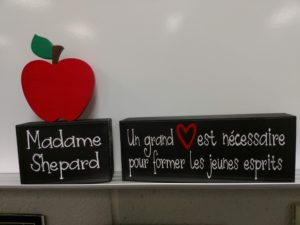 Madame
Shepard
Un grand est nécessaire
pour former les jeunes esprits